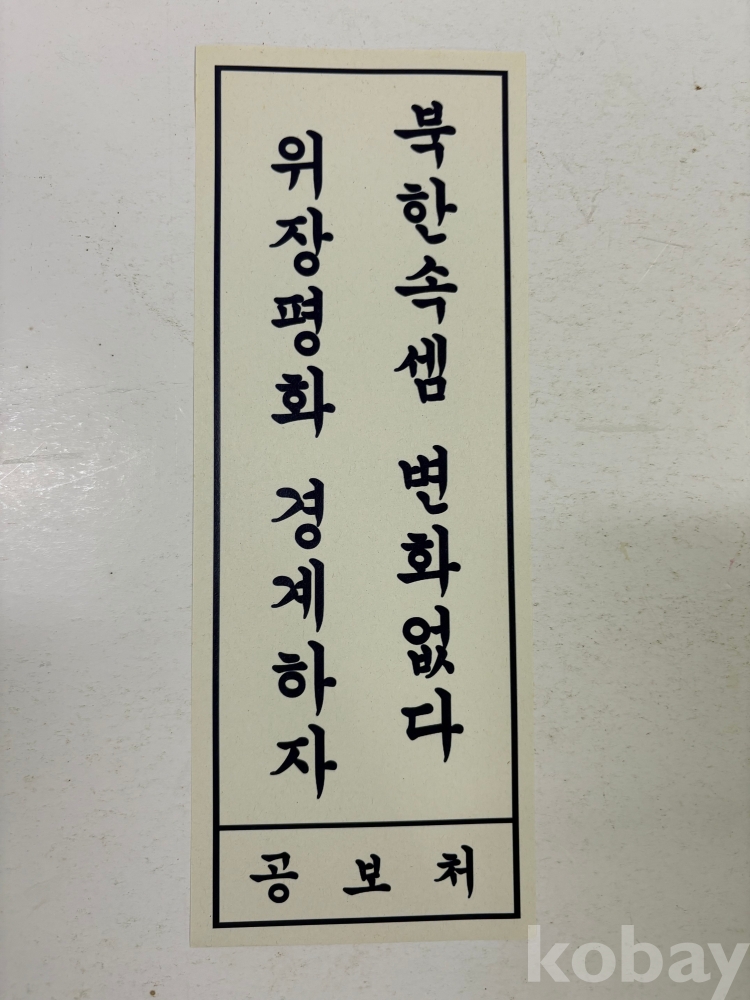 북한속셈 변화없다
위장평화 경계하자
공보처
kobay